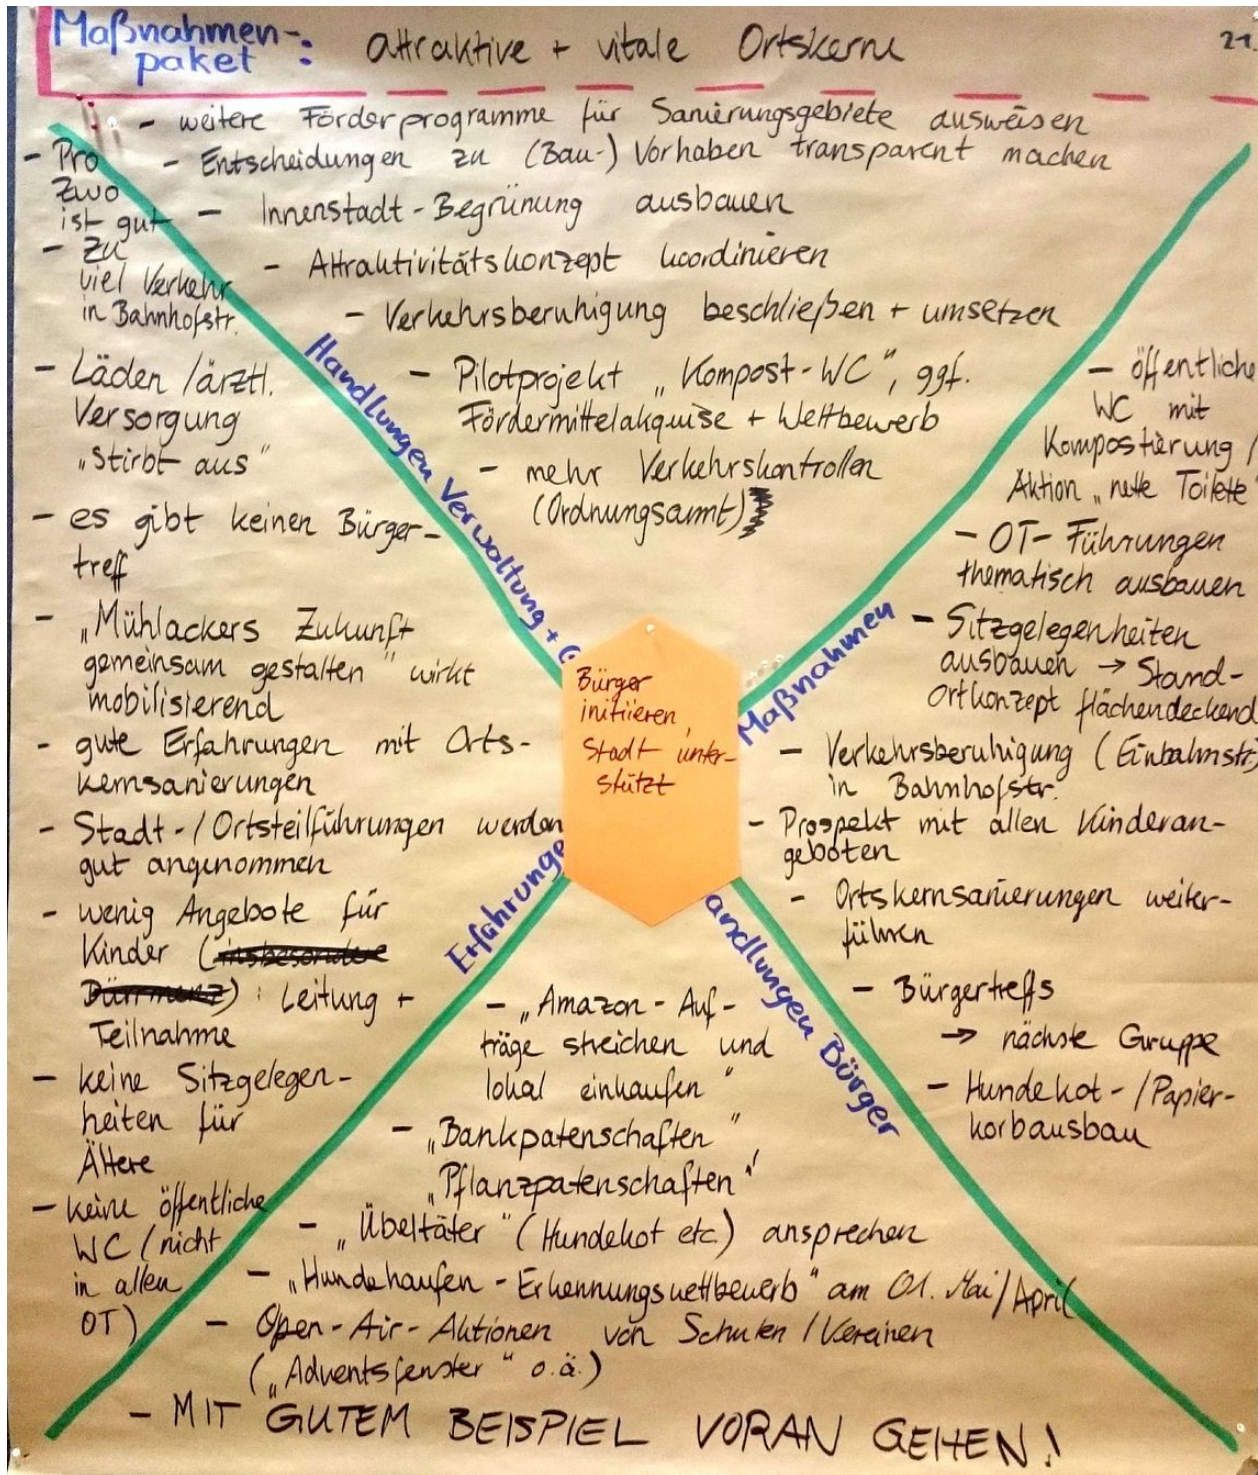 Maßnahmen-
paket :
attraktive + vitale Ortskerne
21.
- weitere Förderprogramme für Sanierungsgebiete ausweisen
- Entscheidungen zu (Bau-) Vorhaben transparent machen
- Innenstadt-Begrünung ausbauen
- Attraktivitätskonzept koordinieren
- Verkehrsberuhigung beschließen + umsetzen
- Pilotprojekt „Kompost-WC", ggf.
Fördermittelakquise + Wettbewerb
- mehr Verkehrskontrollen
(Ordnungsamt)
Handlungen Verwaltung +
- Pro
Zwo
ist gut
- Zu
viel Verkehr
in Bahnhofstr.
- Läden / ärztl.
Versorgung
„stirbt aus"
- es gibt keinen Bürger-
treff
- „Mühlackers Zukunft
gemeinsam gestalten" wirkt
mobilisierend
- gute Erfahrungen mit Orts-
kernsanierungen
- Stadt-/Ortsteilführungen werden
gut angenommen
- wenig Angebote für
Kinder (insbesondere
Dürrmenz) : Leitung +
Teilnahme
- keine Sitzgelegen-
heiten für
Ältere
- keine öffentliche
WC (nicht
in allen
OT)
Erfahrunge
Bürger
initiieren,
Stadt unter-
stützt
Maßnahmen
- öffentliche
WC mit
Kompostierung /
Aktion „nette Toilette"
- OT-Führungen
thematisch ausbauen
- Sitzgelegenheiten
ausbauen → Stand-
ortkonzept flächendeckend
- Verkehrsberuhigung (Einbahnstr.)
in Bahnhofstr.
- Prospekt mit allen Kinderan-
geboten
- Ortskernsanierungen weiter-
führen
- Bürgertreffs
→ nächste Gruppe
- Hundekot-/Papier-
korbausbau
andlungen Bürger
- „Amazon-Auf-
träge streichen und
lokal einkaufen"
- „Bankpatenschaften"
„Pflanzpatenschaften"
- „Übeltäter" (Hundekot etc.) ansprechen
- „Hundehaufen-Erkennungswettbewerb" am 01. Mai/April
- Open-Air-Aktionen von Schulen / Vereinen
(„Adventsfenster" o.ä.)
- MIT GUTEM BEISPIEL VORAN GEHEN!